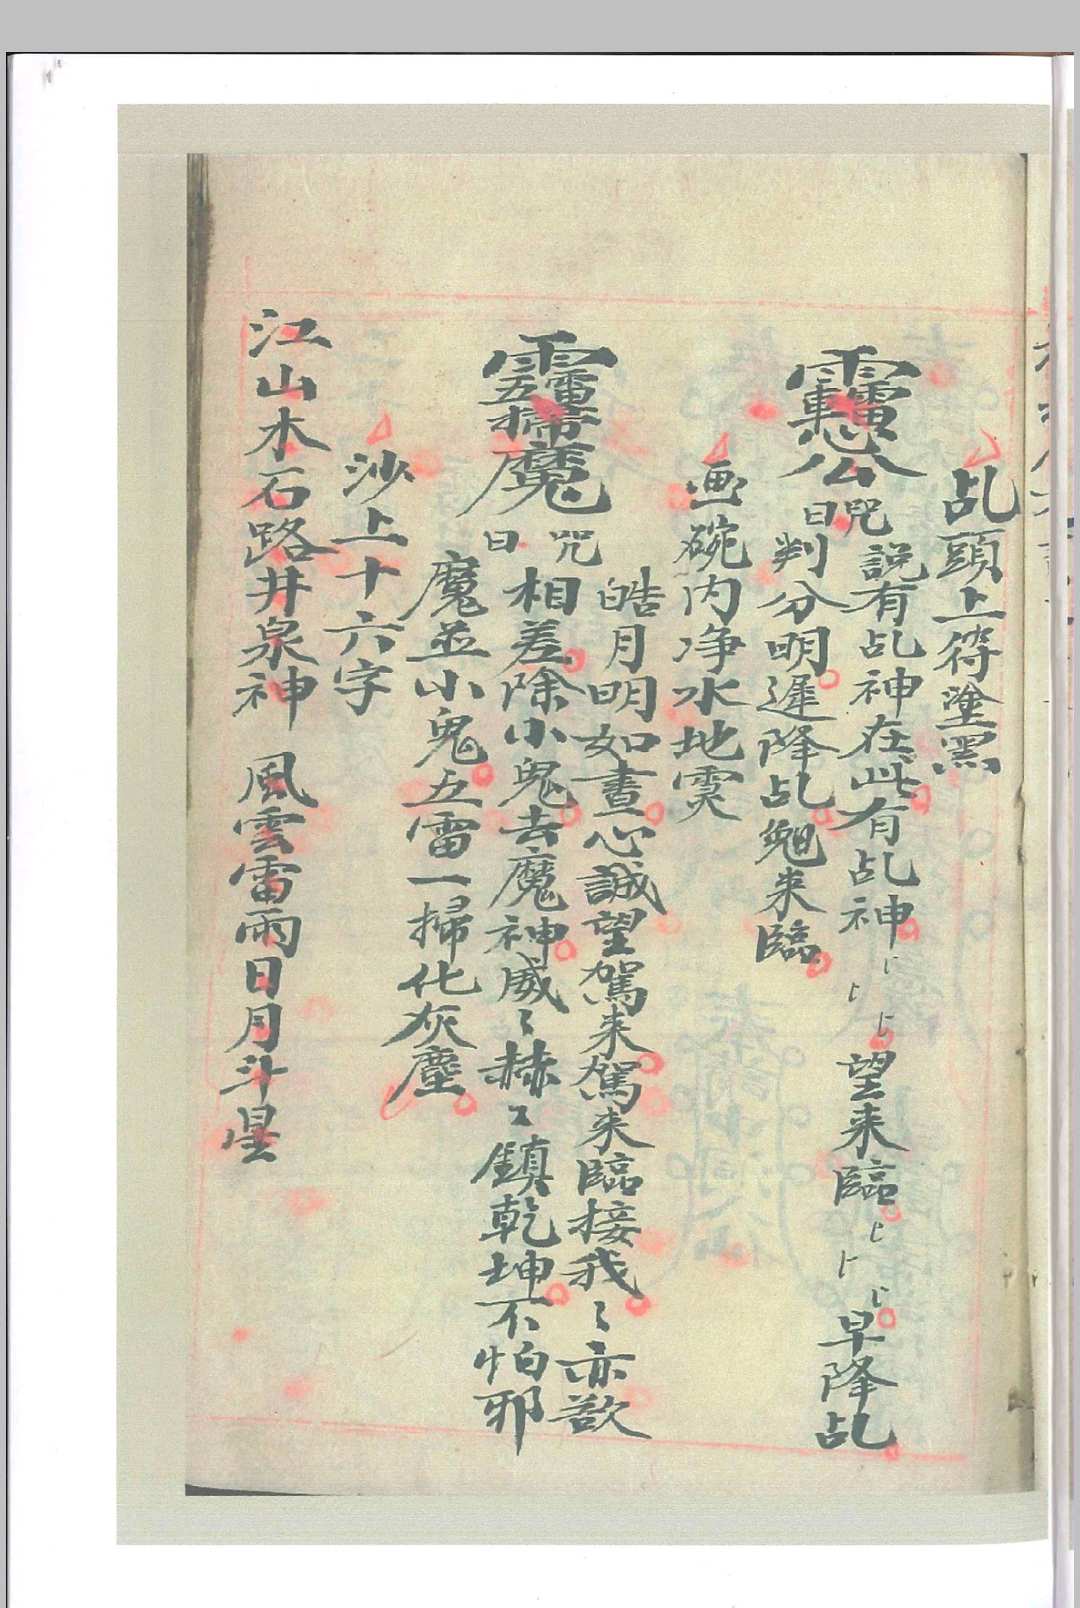 乩頭上符塗黑
咒曰
説有乩神在此有乩神〻〻〻望来臨〻〻〻早降乩
判分明遲降乩魁来臨
画碗内净水地霓
咒曰
皓月明如晝心誠望駕来駕来臨接我〻亦欲
相差除小鬼去魔神威〻赫〻鎮乾坤不怕邪
魔並小鬼五雷一掃化灰塵
沙上十六字
江山木石路井泉神 風雲雷雨日月斗星